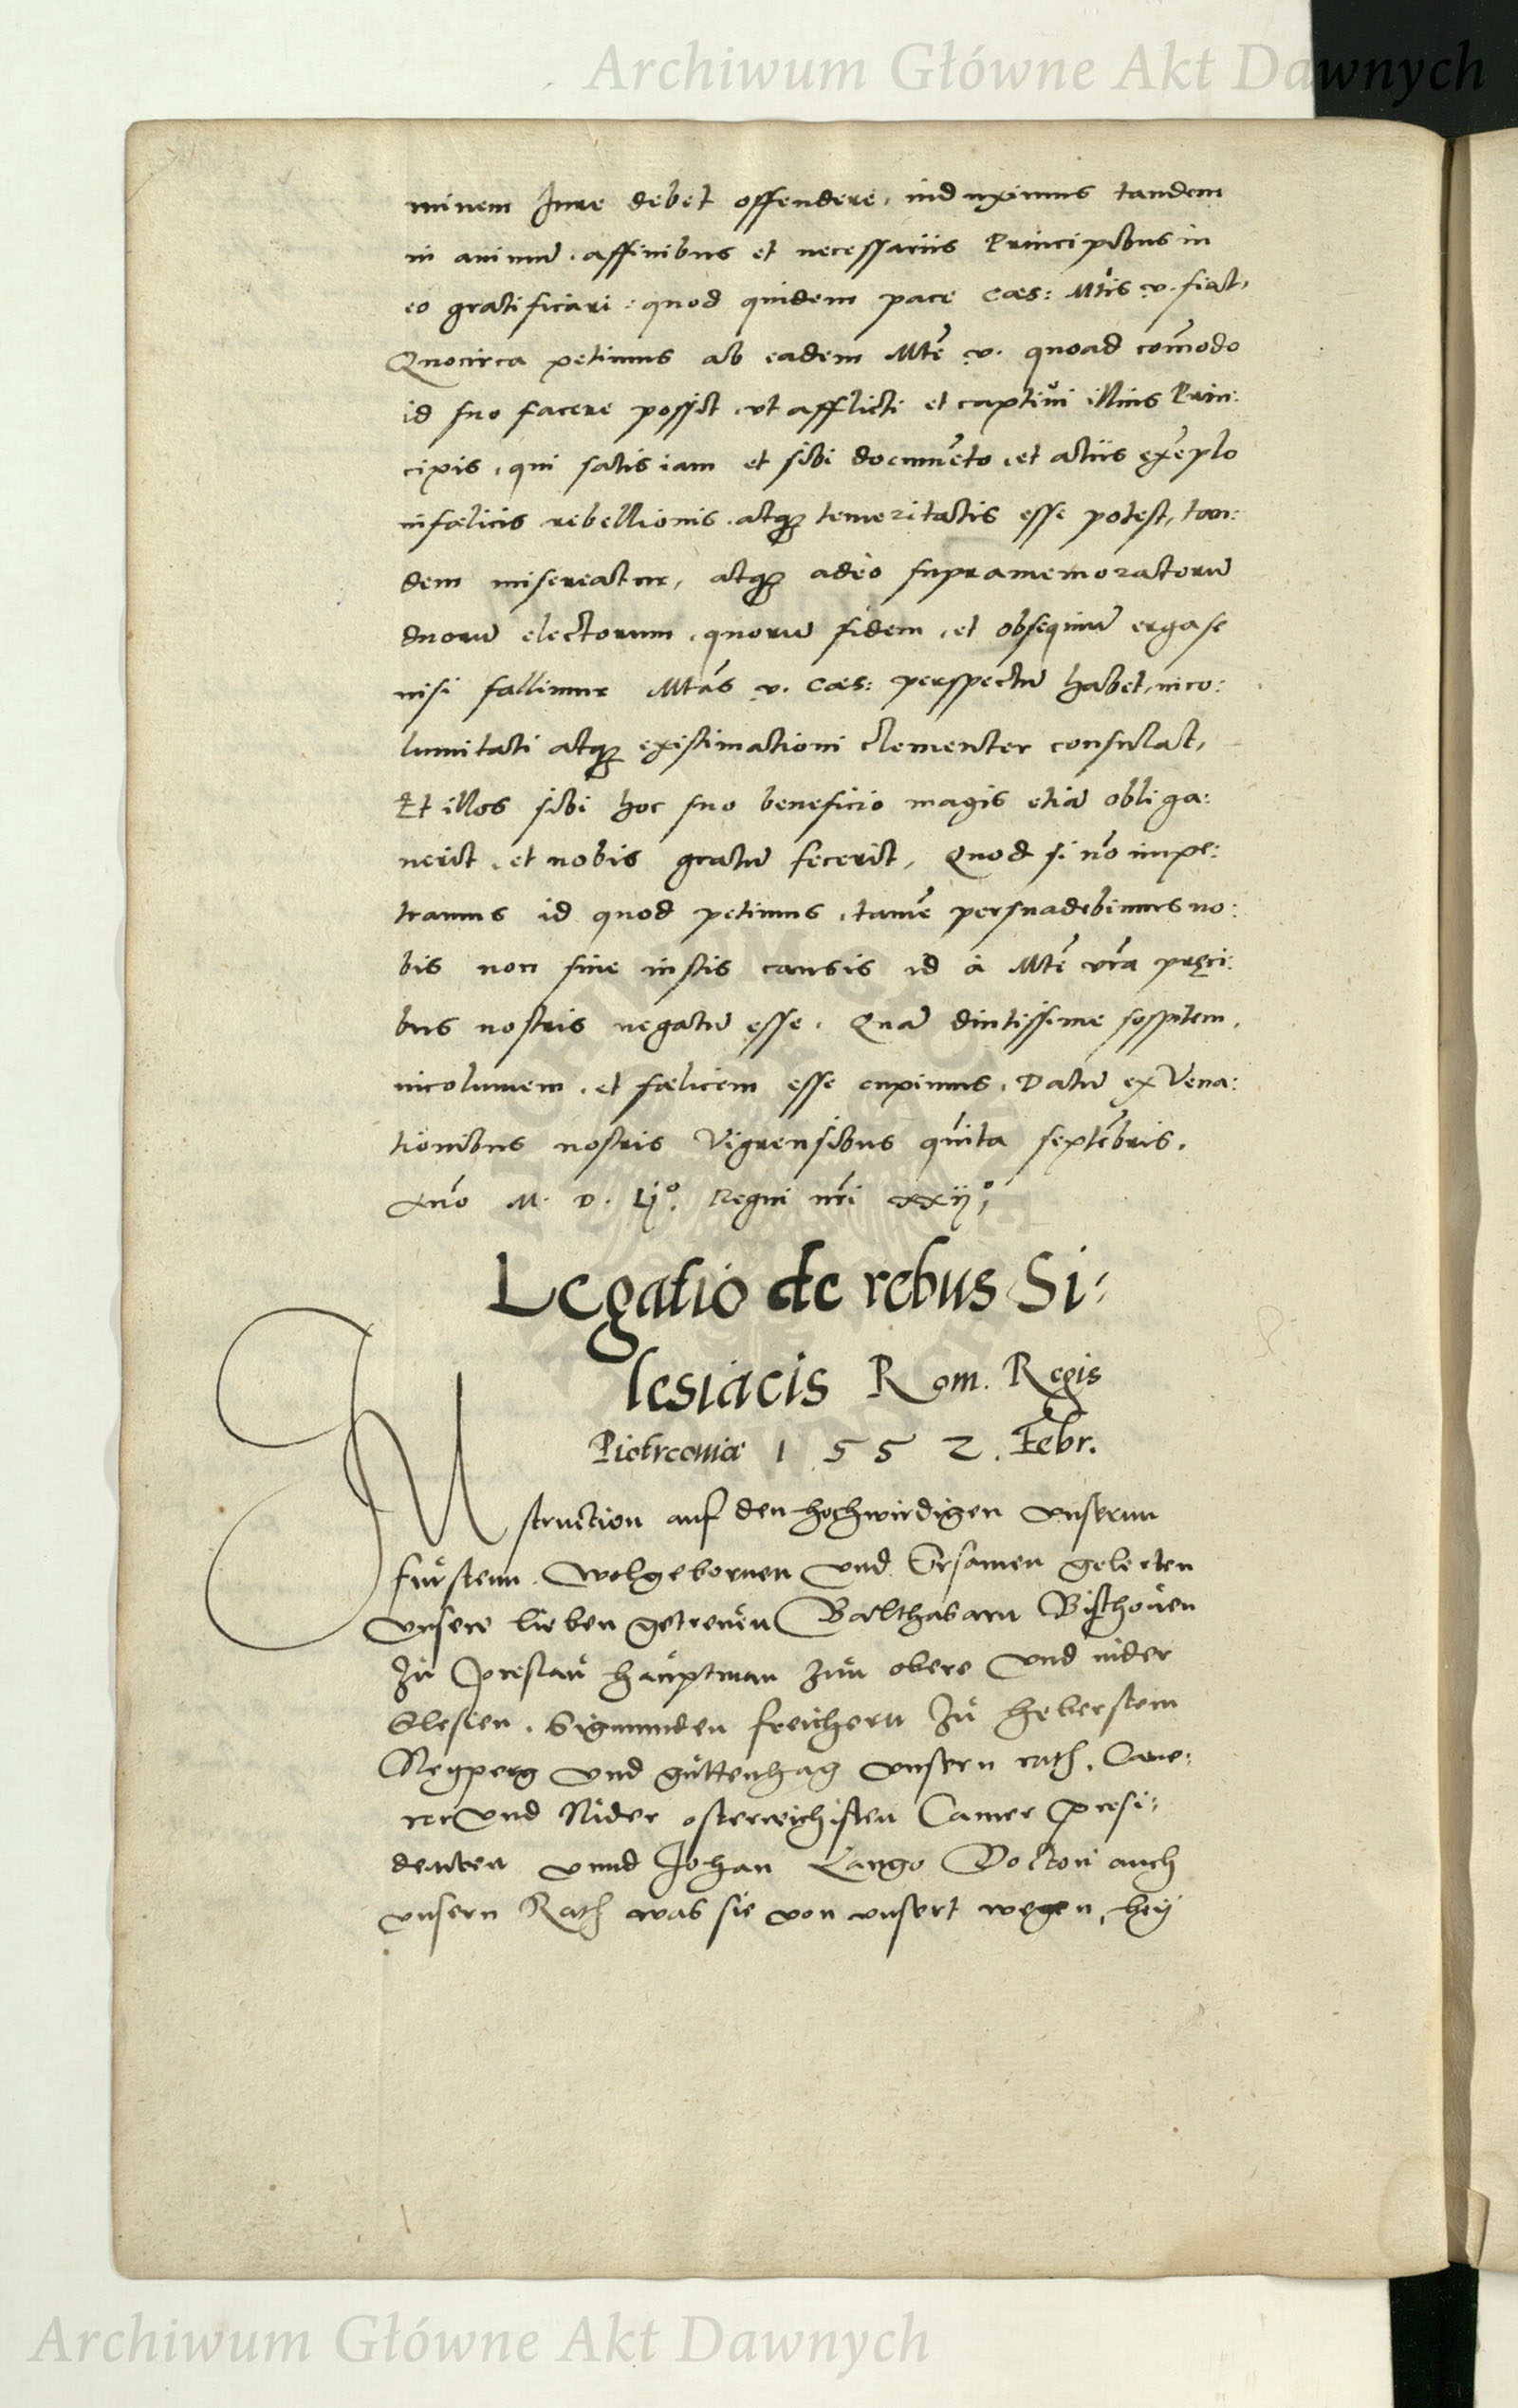 Archiwum Główne Akt Dawnych
minem Iure debet offendere, induximus tandem
in animũ, affinibus et necessariis Principibus in
eo gratificari: quod quidem pace Caes: Mtis v. fiat,
Quocirca petimus ab eadem Mte v. quoad com̃odo
id suo facere possit, vt afflicti et captiui illius Prin:
cipis, qui satis iam et sibi documẽto, et aliis exẽplo
infœlicis rebellionis atq̃ temeritatis esse potest, tan:
dem misereatur, atq̃ adeo supramemoratorũ
duorũ electorum, quorũ fidem, et obsequiũ erga se
nisi fallimur Mtas v. Caes: perspectũ habet, inco:
lumitati atq̃ existimationi clementer consulat,
Et illos sibi hoc suo beneficio magis etiã obliga:
uerit, et nobis gratũ fecerit, Quod si nõ impe:
tramus id quod petimus, tamẽ persuadebimus no:
bis non sine iustis causis id à Mte vra pręci:
bus nostris negatũ esse. Quã diutissime sospitem,
incolumem, et fœlicem esse cupimus. Datũ ex Vena:
tionibus nostris Vigrensibus quĩta septẽbris.
Año M. D. Lijº. Regni nri xxijº,
Legatio de rebus Si:
lesiacis Rom. Regis
Piotrcouiæ 1552. Febr.
Instruction auf den hochwirdigen vnserun
fürstenn. Wolgebornen vnd Ersamen gelerten
vnsere lieben getreuen Balthasarn Bischouen
Zu Preslau hauptman Zun obere vnd nider
Slesien. Sigmunden freihern Zu heberstein
Neyperg vnd guttenhag vnsern rath, Came:
rer vnd Nider osterreichisten Camer Presi:
denten vnnd Johan Lango Doctori auch
vnsern Rath was sie von vnsert wegen, bey
Archiwum Główne Akt Dawnych